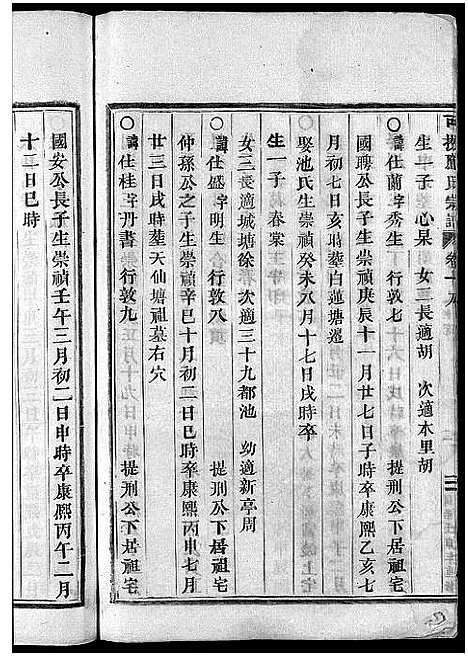 應氏宗譜 卷十九
生一子 心杲 女三長適胡 次適本里胡
○諱仕蘭字秀生 行敦七 提刑公下居祖宅
國聘公長子生崇禎庚辰十一月廿七日子時卒康熙乙亥七
月初七日亥時葬白蓮塘
娶池氏生崇禎癸未八月十七日戌時卒
生一子 春棠
女三長適城塘徐 次適三十九都池 幼適新亭周
○諱仕盛字明生 行敦八 提刑公下居祖宅
仲孫公之子生崇禎辛巳十月初二日巳時卒康熙丙申七月
廿三日戌時葬天仙塘祖墓右穴
○諱仕桂字丹書 行敦九 提刑公下居祖宅
國安公長子生崇禎壬午三月初二日申時卒康熙丙午二月
十二日巳時